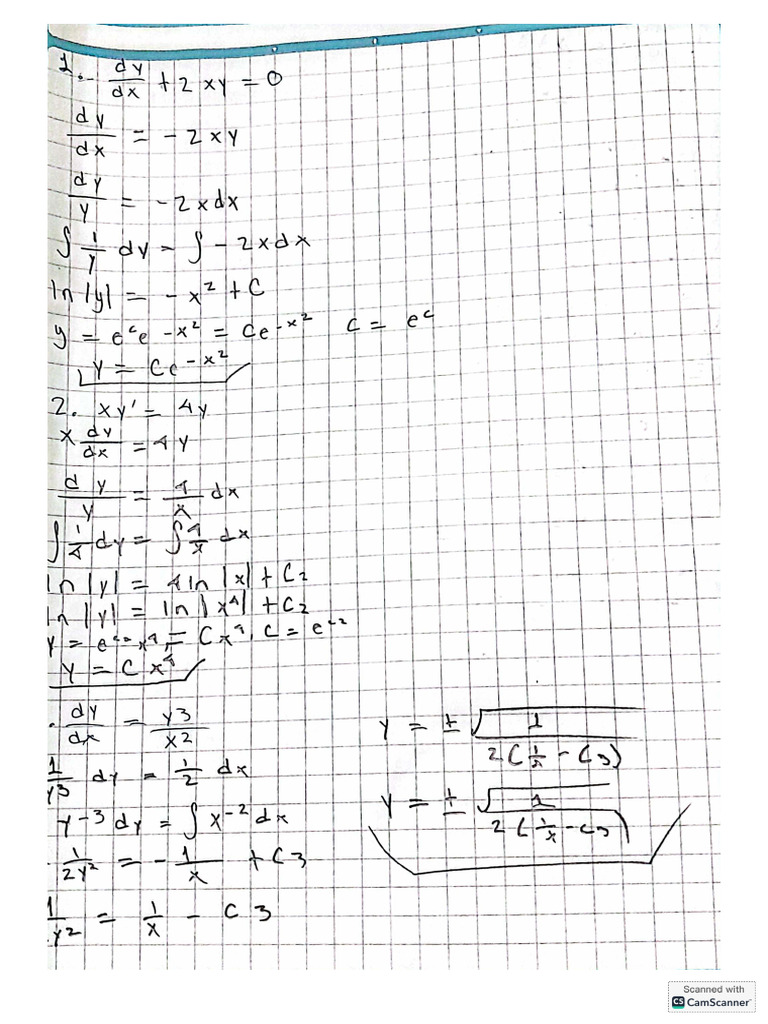 1.- dy/dx + 2xy = 0
dy/dx = -2xy
dy/y = -2xdx
∫ 1/y dy = ∫ -2xdx
ln|y| = -x² + C
y = eᶜe -x² = Ce-x² c = eᶜ
y = Ce-x²
2. xy' = 4y
x dy/dx = 4y
dy/y = 4/x dx
∫ 1/4 dy = ∫ 4/x dx
ln|y| = 4ln|x| + C2
ln|y| = ln|x⁴| + C2
y = eᶜ² x⁴ = Cx⁴, C = eᶜ²
y = Cx⁴
. dy/dx = y3/x2
1/y3 dy = 1/2 dx
y-3 dy = ∫ x-2 dx
1/2y² = -1/x + C3
1/y2 = 1/x - C3
y = ± √1/2(1/x - C3)
y = ± √1/2(1/x - C3)
Scanned with
CS CamScanner